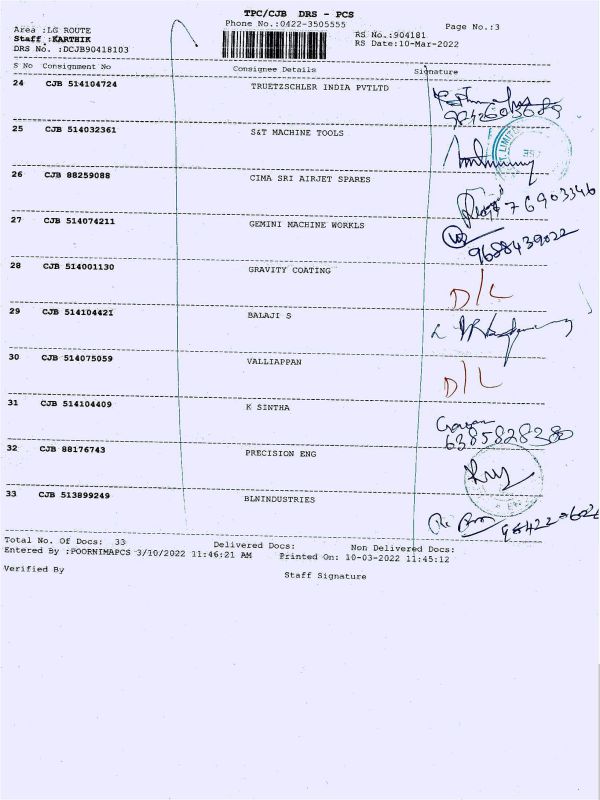 TPC/CJB DRS - PCS
Phone No.:0422-3505555
Page No.:3
Area :LG ROUTE
Staff :KARTHIK
DRS No. :DCJB90418103
RS No.:904181
RS Date:10-Mar-2022
S No Consignment No Consignee Details Signature
24 CJB 514104724 TRUETZSCHLER INDIA PVTLTD
25 CJB 514032361 S&T MACHINE TOOLS
26 CJB 88259088 CIMA SRI AIRJET SPARES
27 CJB 514074211 GEMINI MACHINE WORKLS
9688439022
28 CJB 514001130 GRAVITY COATING
D/L
29 CJB 514104421 BALAJI S
30 CJB 514075059 VALLIAPPAN
D/L
31 CJB 514104409 K SINTHA
6385828280
32 CJB 88176743 PRECISION ENG
33 CJB 513899249 BLNINDUSTRIES
Total No. Of Docs: 33 Delivered Docs: Non Delivered Docs:
Entered By :POORNIMAPCS 3/10/2022 11:46:21 AM Printed On: 10-03-2022 11:45:12
Verified By
Staff Signature